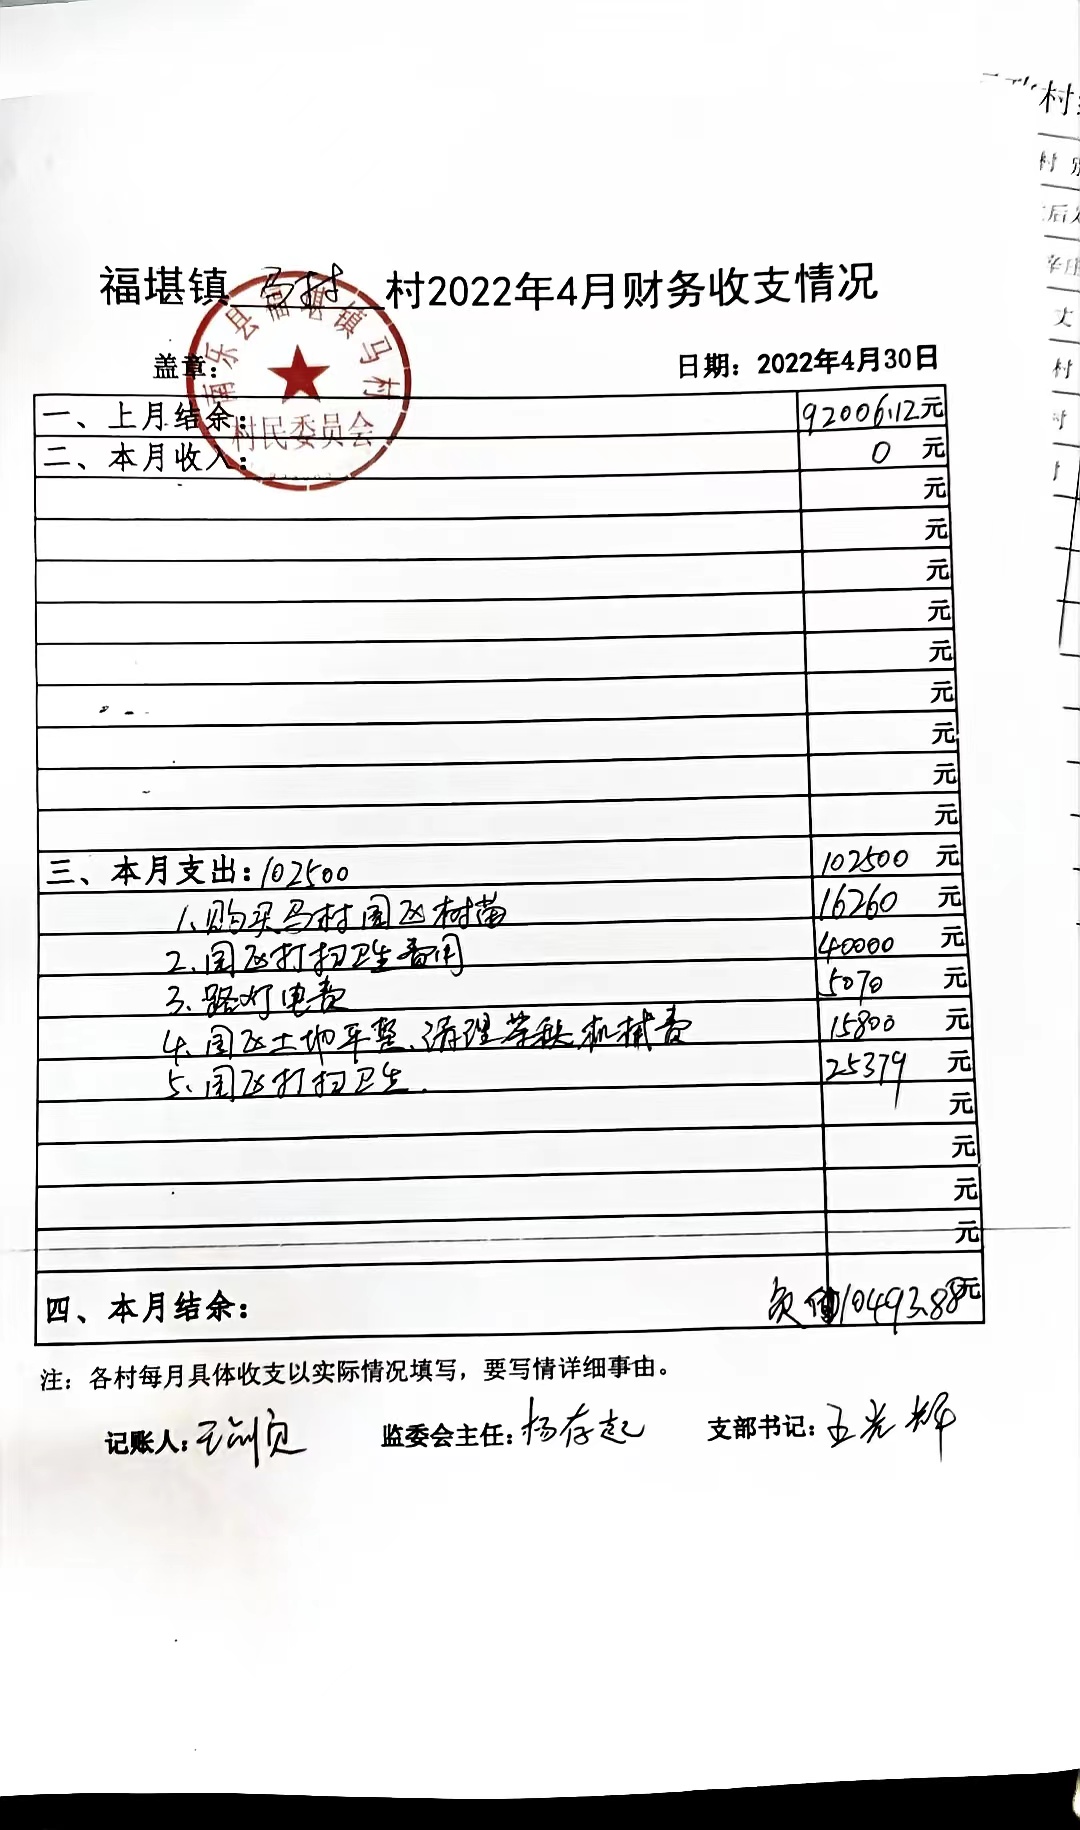 福堪镇 马村 村2022年4月财务收支情况
南乐县福堪镇马村
村民委员会
盖章: 日期: 2022年4月30日
一、上月结余: 92006.12元
二、本月收入: 0 元
元
元
元
元
元
元
元
元
元
三、本月支出:102500 102500 元
1、购买马村园区树苗 16260 元
2、园区打扫卫生费用 40000 元
3、路灯电费 5070 元
4、园区土地平整、清理 机械费 15800 元
5、园区打扫卫生. 25379 元
元
元
元
元
四、本月结余: 负值10493.88元
注: 各村每月具体收支以实际情况填写,要写情详细事由。
记账人: 监委会主任:杨存起 支部书记:王光辉
村
村
后
村
村